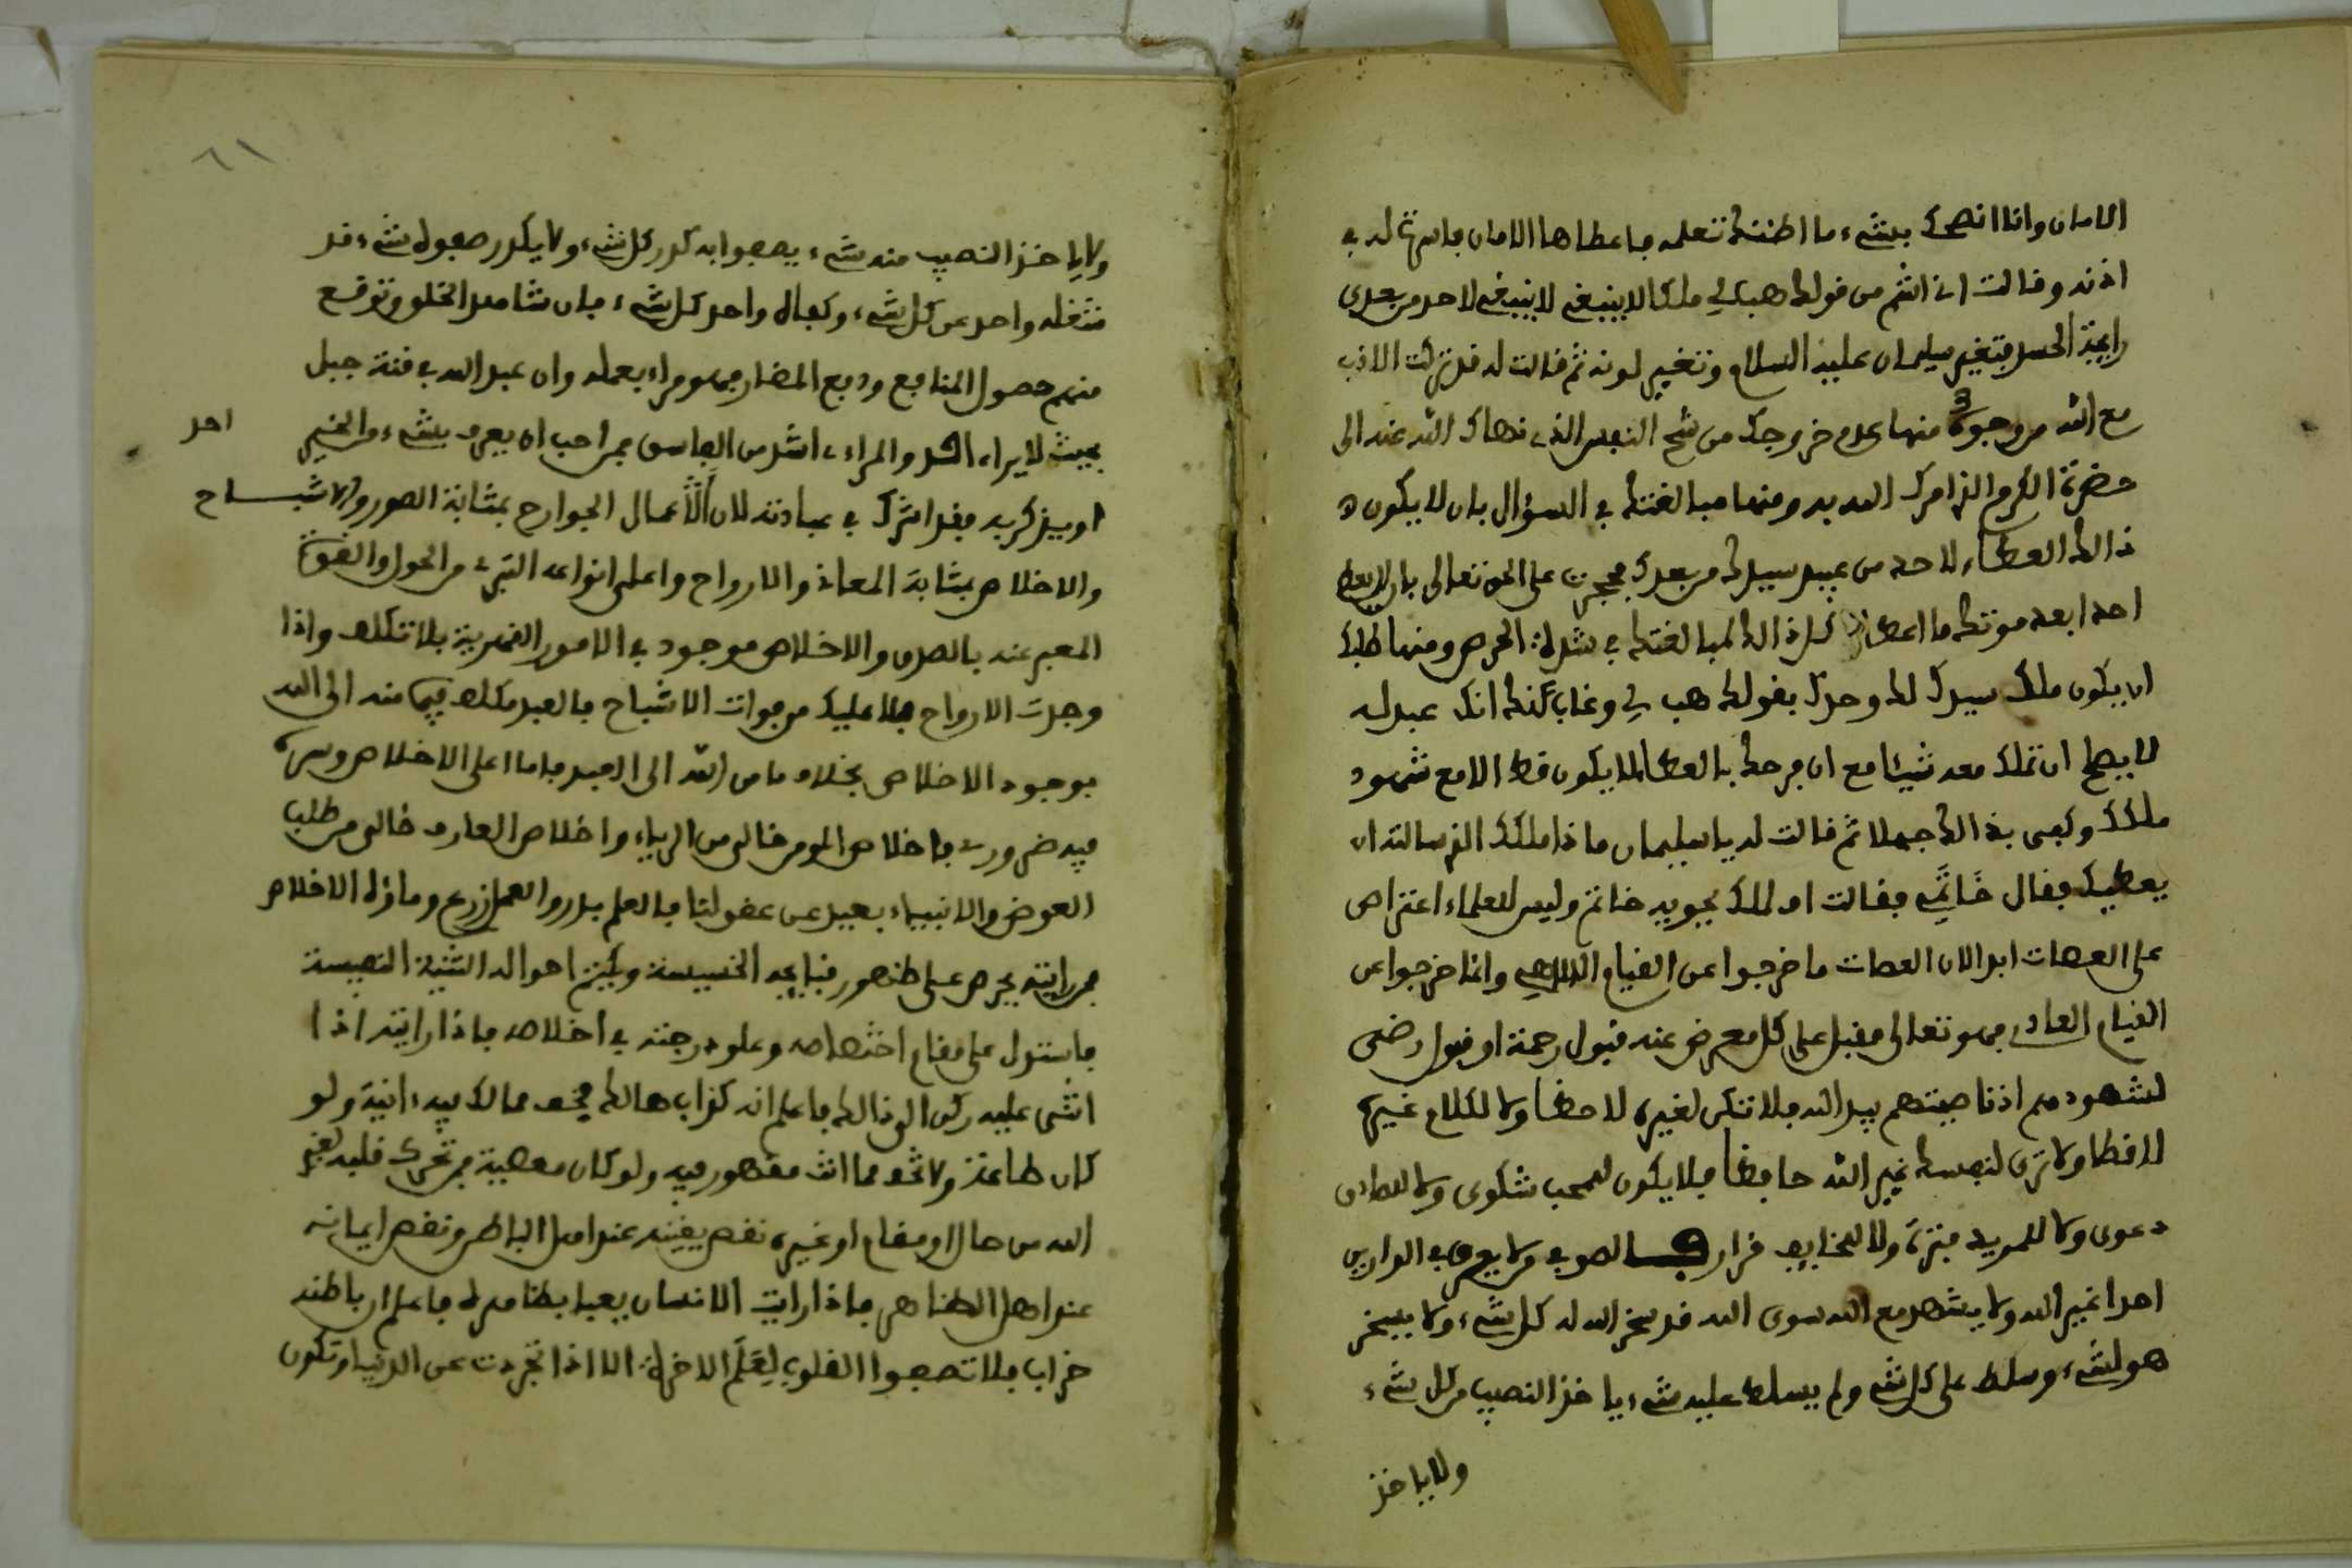 الامان وانا انصحك بشيء ما اظنك تعلمه فاعطاها الامان فاسرت له في
اذنه وقالت اني اشم من قولك هب لي ملكا لا ينبغي لا ينبغي لاحد من بعدي
رايحة الحسد فتغير سليمان عليه السلام وتغير لونه ثم قالت له قد تركت الادب
مع الله من وجوه منها عدم خروجك من شح النفس الذي نهاك الله عنه الى
حضرة الكرم الذي امرك الله به ومنها مبالغتك في السؤال بان لا يكون
ذالك العطاء لاحد من عبيد سيدك من بعدك فحجرت على الحق تعالى بان لا يعطي
احدا بعد موتك ما اعطاك كل ذالك لمبالغتك في شدة الحرص ومنها طلبك
ان يكون ملك سيدك لك وحدك بقولك هب لي وغاب عنك انك عبد له
لا يصح ان تملك معه شيئا مع ان فرحك بالعطا لا يكون قط الا مع شهود
ملكك وكفى بذالك جهلا ثم قالت له يا سليمان ماذا ملكك الذي سالته ان
يعطيك فقال خاتمي فقالت اف لملك يحويه خاتم وليس للعلماء اعتراض
على العصات ابدا لان العصات ما خرجوا عن القيام الالاهي وانما خرجوا عن
القيام العادي فهو تعالى مقبل على كل معرض عنه قبول رحمة او قبول رضى
لشهودهم اذ ناصيتهم بيد الله فلا تكن لغيره لاحظا ولا لكلام غيره
لافظا ولا ترى لنفسك غير الله حافظا فلا يكون للمحب شكوى ولا للصادق
دعوى ولا للمريد فترة ولا للخايف قرار الصوفي من لا يعرف في الدارين
احدا غير الله ولا يشهد مع الله سوى الله قد سخر الله له كل شيء ولا يسخر
هو لشيء وسلط على كل شيء ولم يسلط عليه شيء ياخذ النصيب من كل شيء
ولا ياخذ
٦١
ولا ياخذ النصيب منه شيء يصفوا به كدر كل شيء ولا يكدر صفوه شيء قد
شغله واحد عن كل شيء وكفاه واحد كل شيء فان شاهد الخلق وتوقع
منهم حصول المنافع ودفع المضار فهو مراء بعمله وان عبد الله في قنة جبل
بحيث لا يراه احد والمراءي اشر من الفاسق فمن احب ان يعرف بشيء من الخير
احد
او يذكر به فقد اشرك في عبادته لان الاعمال الجوارح بمثابة الصور والاشباح
والاخلاص بمثابة المعاني والارواح واعلى انواعه التبري من الحول والقوة
المعبر عنه بالصدق والاخلاص موجود في الامور القهرية بلا تكلف واذا
وجدت الارواح فلا عليك من فوات الاشباح فالعبد مكلف فيما منه الى الله
بوجود الاخلاص بخلاف ما من الله الى العبد فاما اعلى الاخلاص وسره
فيه ضروري فاخلاص المومن خالص من الرياء واخلاص العارف خالص من طلب
العوض والانبياء بعيد عن عقولنا فالعلم بذر والعمل زرع وماؤه الاخلاص
فمن رايته يحرص على ظهور قبايحه الخسيسة وكتم احواله السنية النفيسة
فاستدل على مقام اختصاصه وعلو درجته في اخلاصه فاذا رايته اذا
اثنى عليه ركن الى ذالك فاعلم انه كذاب هالك فخف مما لك فيه انية ولو
كان طاعة ولا تخف مما انت مقهور فيه ولو كان معصية فمن تحرك قلبه لغير
الله من حال او مقام او غيره نقص يقينه عند اهل الباطن ونقص ايمانه
عند اهل الظاهر فاذا رايت الانسان يعبا بظاهره فاعلم ان باطنه
خراب فلا تصفوا القلوب لعلم الاخرة الا اذا تجردت عن الدنيا وتكون